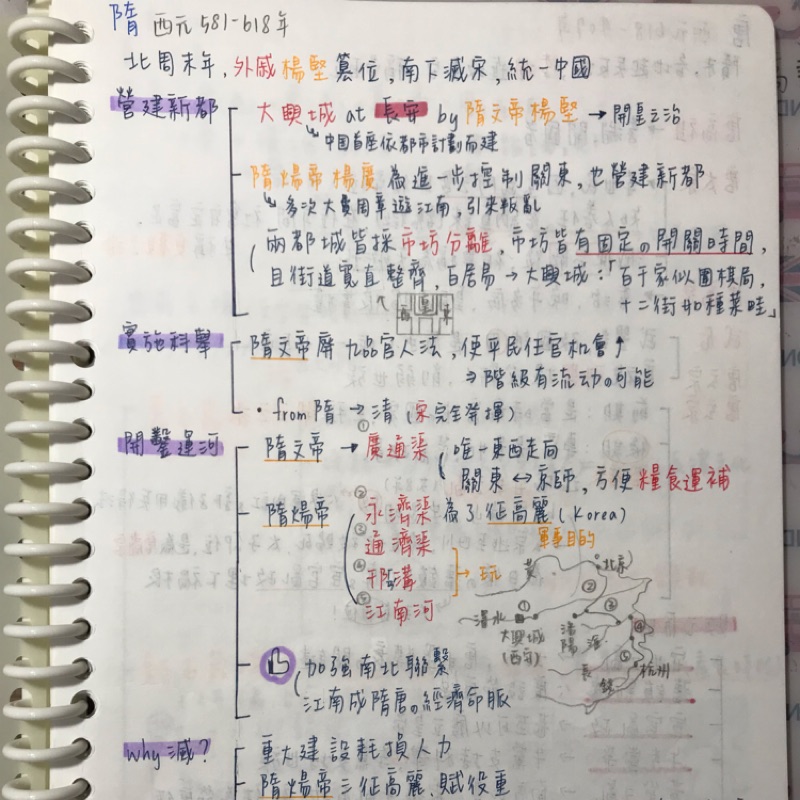 隋 西元581-618年
北周末年,外戚楊堅篡位,南下滅宋,統一中國
營建新都
大興城 at 長安 by 隋文帝楊堅 → 開皇之治
中國首座依都市計劃而建
隋煬帝楊廣為進一步控制關東,也營建新都
多次大費周章遊江南,引來叛亂
兩都城皆採市坊分離,市坊皆有固定の開關時間,
且街道寬直整齊,白居易→大興城:「百千家似圍棋局,
十二街如種菜畦」
實施科舉
隋文帝廢九品官人法,使平民任官機會↑
⇒階級有流動の可能
・from隋→清(宋完全發揮)
開鑿運河
隋文帝 → ①廣通渠
唯一東西走向
關東↔京師,方便糧食運補
隋煬帝
②永濟渠 為了征高麗(Korea)
軍事目的
③通濟渠
④邗溝
→玩
⑤江南河
黃
北京
②
渭水
①
③
大興城
(西安)
洛陽
淮
④
⑤
長
杭州
加強南北聯繫
江南成隋唐の經濟命脈
why滅?
重大建設耗損人力
隋煬帝三征高麗、賦役重